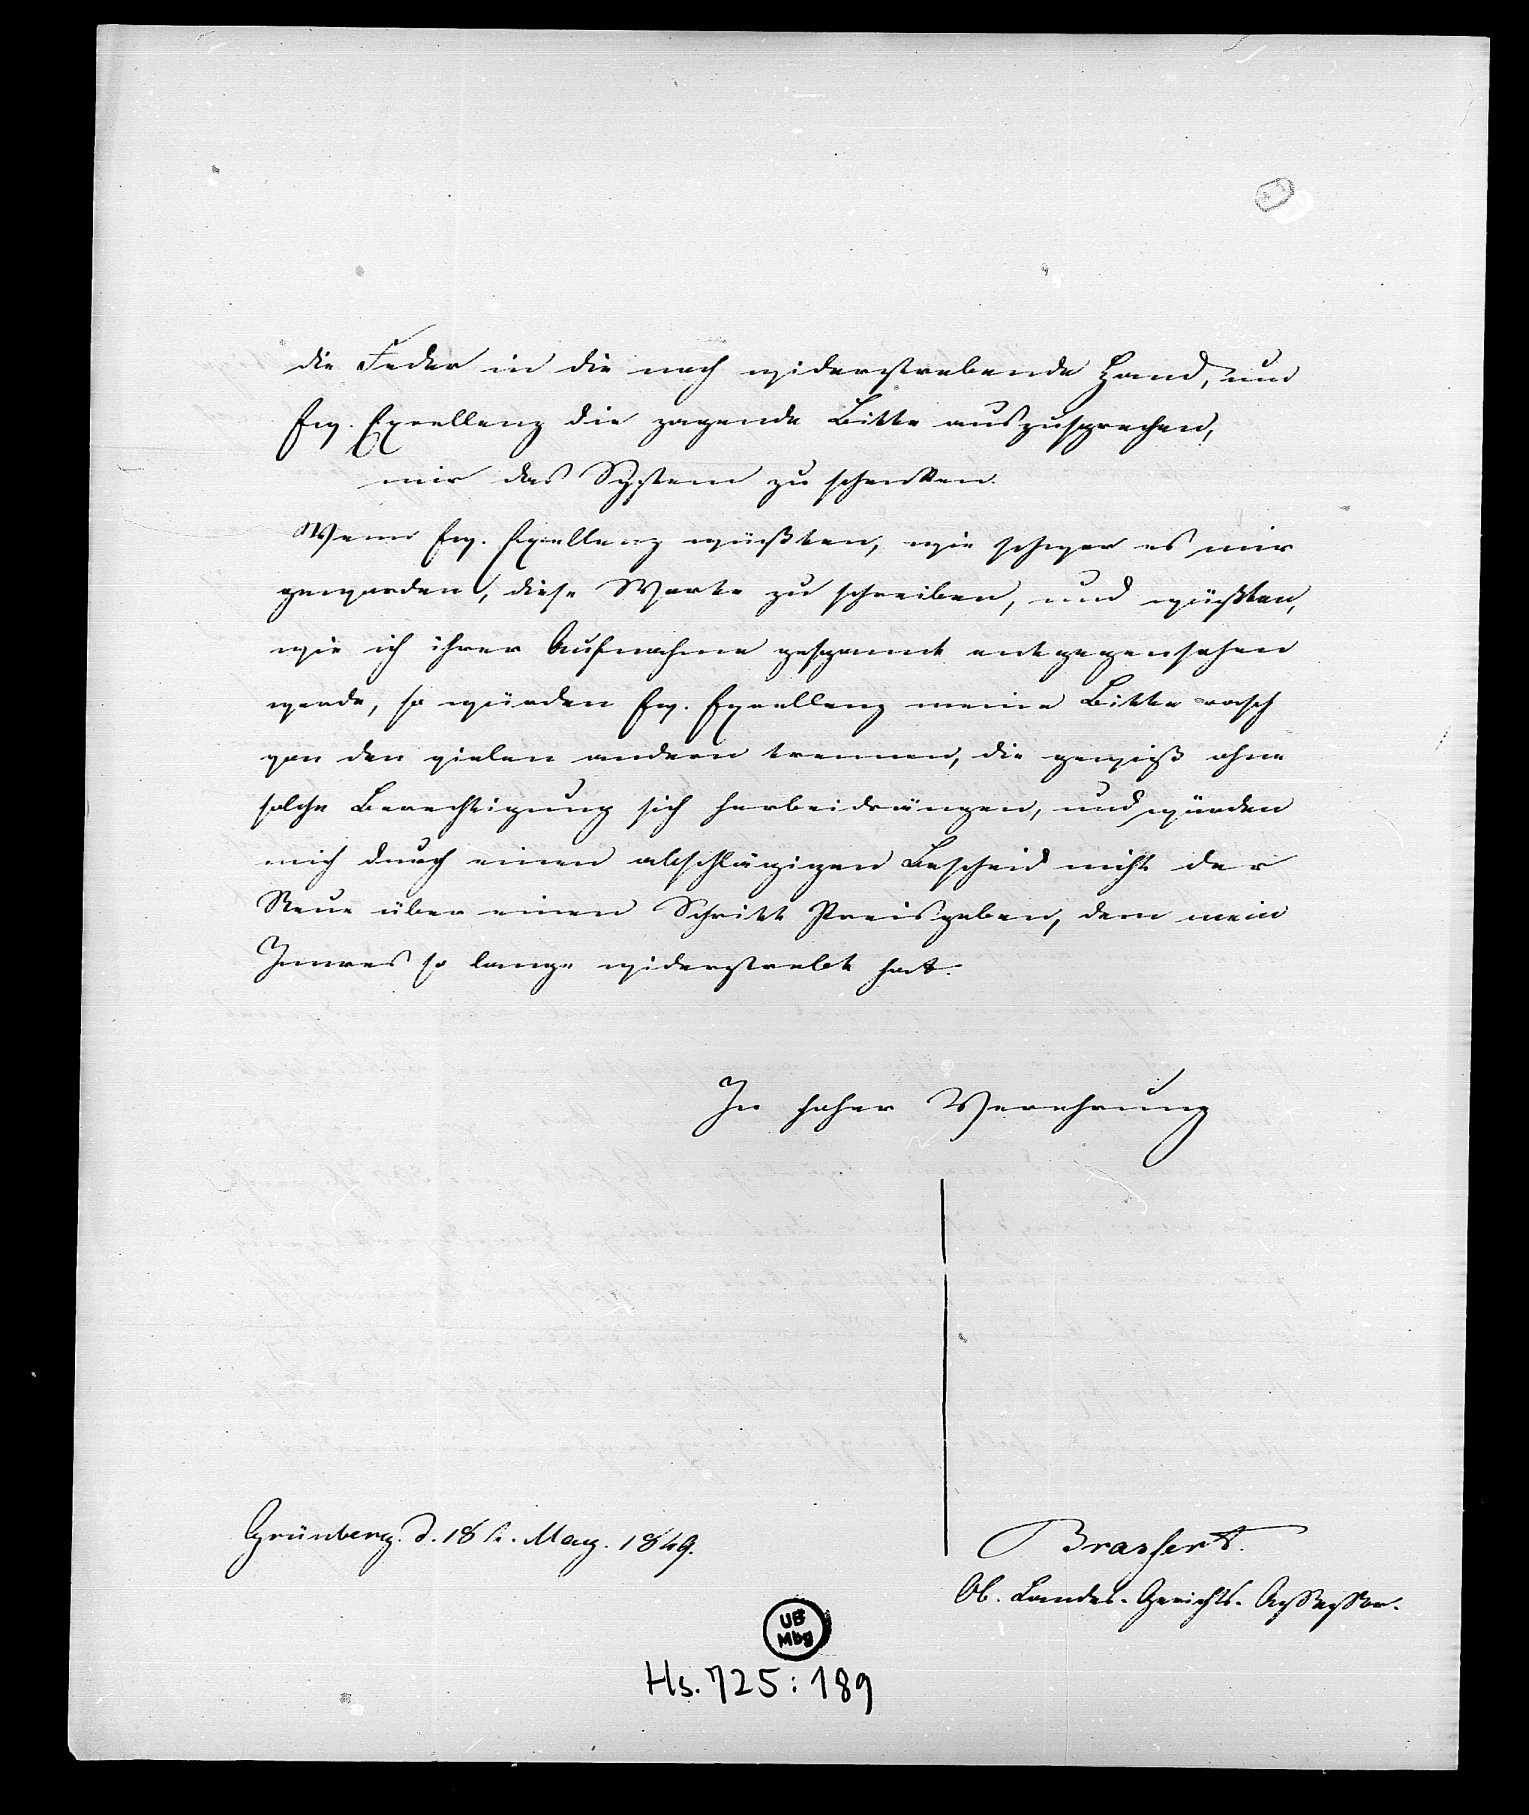 die Feder in die noch widerstrebende Hand, um
Ew. Excellenz die zagende Bitte auszusprechen,
mir das System zu schenken.
Wenn Ew. Excellenz wüßten, wie schwer es mir
geworden, diese Worte zu schreiben, und wüßten,
wie ich ihrer Aufnahme gespannt entgegensehen
werde, so würden Ew. Excellenz meine Bitte rasch
von den vielen andern trennen, die gewiß ohne
solche Berechtigung sich herbeidrängen, und würden
mich durch einen abschlägigen Bescheid nicht der
Reue über einen Schritt Preisgeben, dem mein
Inneres so lange widerstrebt hat.
In hoher Verehrung
Grünberg. d. 18t. May. 1849.
Brassert.
Ob. Landes-Gerichts-Assessor.
UB
Mbg
Hs. 725:189